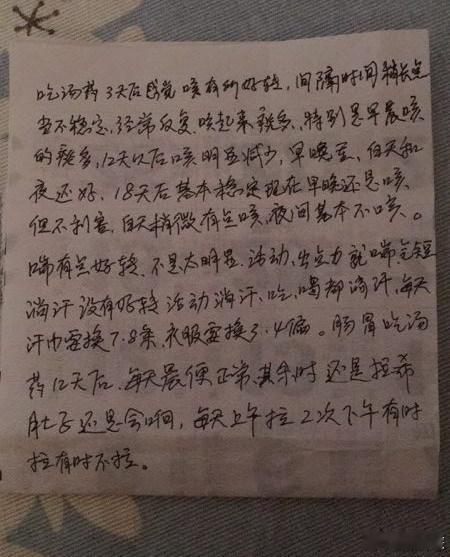 吃汤药3天后感觉咳有所好转,间隔时间稍长点
当不稳定,经常反复,咳起来痰多,特别是早晨咳
的痰多,12天以后咳明显减少,早晚至,白天和
夜还好,18天后基本稳定现在早晚还是咳
但不利害,白天稍微有点咳,夜间基本不咳。
喘有点好转,不是太明显,活动、出点力就喘气短
淌汗没有好转活动淌汗、吃、喝都淌汗,每天
汗巾要换7.8条,衣服要换3.4遍。肠胃吃汤
药12天后,每天晨便正常,其余时还是拉稀
肚子还是会咽,每天上午拉2次下午有时
拉有时不拉。